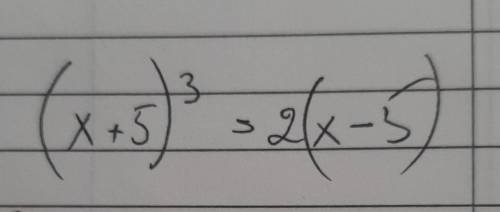 (x+5)³ = 2(x-5)